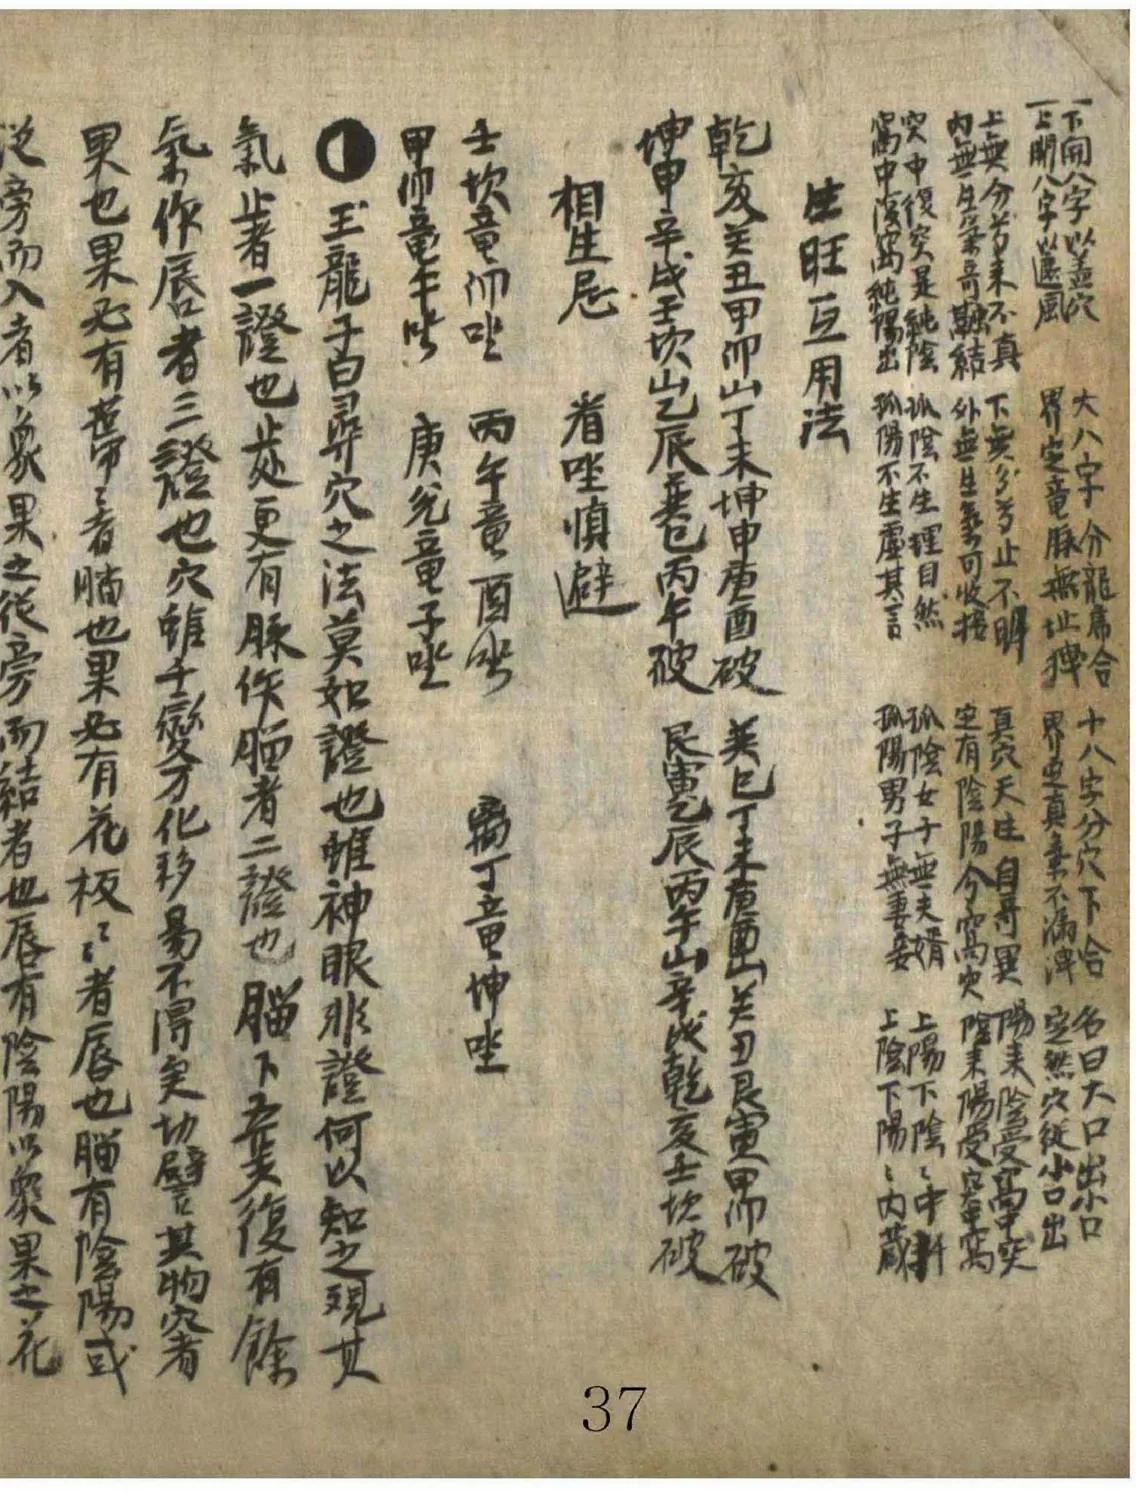 一下開八字以蓋穴 大八字分龍席合 十八字分穴下合 名曰大口出小口
一上開八字以遮風 界定竜脉無止理 界定真氣不漏洩 定然穴從小口出
上無分兮來不真 下無分兮止不明 真穴天生自奇異 陽來陰受窩中突
內無生氣奇融結 外無生氣可收拾 定有陰陽分窩突 陰來陽受突中窩
突中復突是純陰 孤陰不生理自然 孤陰女子無夫婿 上陽下陰〻中
窩中復窩純陽出 孤陽不生虛其言 孤陽男子無妻妾 上陰下陽〻內藏
生旺互用法
乾亥癸丑甲卯山丁未坤申庚酉破 巽巳丁未庚酉山癸丑艮寅甲卯破
坤申辛戌壬坎山乙辰巽巳丙午破 艮寅乙辰丙午山辛戌乾亥壬坎破
相生忌 者坐慎避
壬坎竜卯坐 丙午竜酉坐 离丁竜坤坐
甲卯竜午坐 庚兌竜子坐
玉龍子曰尋穴之法莫如證也雖神眼非證何以知之現其
氣止者一證也止處更有脉作腦者二證也腦下存突復有餘
氣作唇者三證也穴雖千變万化移易不得矣切譬其物穴者
果也果必有蒂〻者腦也果必有花板〻者唇也腦有陰陽或
從旁而入者以象果之從旁而結者也唇有陰陽以象果之花
37